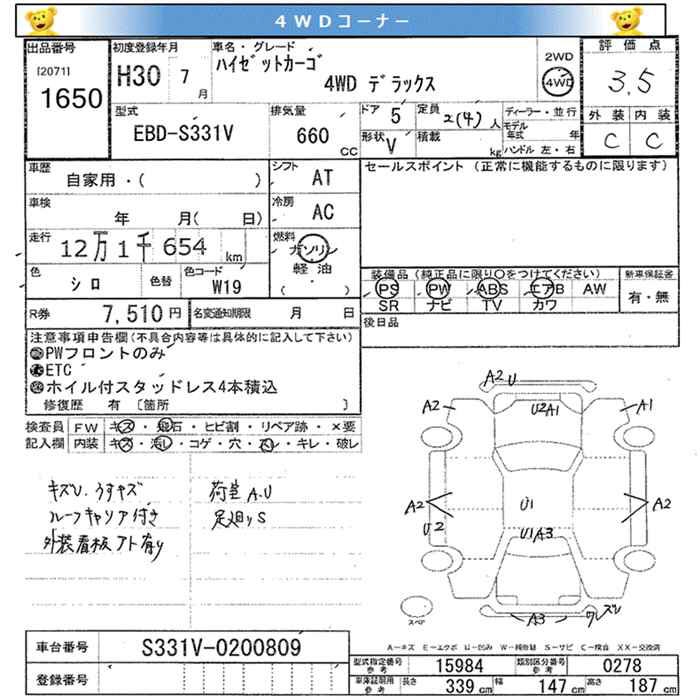 4WDコーナー
出品番号
[2071]
1650
初度登録年月
H30 7 月
車名・グレード
ハイゼットカーゴ
4WD デラックス
2WD
4WD
評価点
3.5
外装 内装
C C
型式
EBD-S331V
排気量
660 cc
ドア 5
定員 2(4) 人
形状 V
積載 kg
ディーラー・並行
モデル年式 年
ハンドル 左・右
車歴
自家用・( )
シフト AT
セールスポイント (正常に機能するものに限ります)
車検
年 月( 日)
冷房 AC
走行
12万1千654 km
燃料
ガソリン
軽油
( )
色
シロ
色替
色コード
W19
装備品 (純正品に限り○をつけてください)
PS PW ABS エアB AW
SR ナビ TV カワ
新車保証書
有・無
R券 7,510円
名変通知期限 月 日
後日品
注意事項申告欄(不具合内容等は具体的に記入して下さい)
PWフロントのみ
ETC
ホイル付スタッドレス4本積込
修復歴 有 [箇所 ]
検査員 FW キズ・飛石・ヒビ割・リペア跡・×要
記入欄 内装 キズ・汚れ・コゲ・穴・スレ・キレ・破レ
キズU、うすキズ
ルーフキャリア付き
外装看板アト有り
荷室 A.U
足廻り S
A2 U
A2
U2A1
A1
A2
U2
U1
A2
U1A3
A3
ワレズレ
スペア
A-キズ E-エクボ U-凹み W-補修跡 S-サビ C-腐食 XX-交換済
車台番号 S331V-0200809
登録番号
型式指定番号 参考 15984
類別区分番号 参考 0278
車庫証明用 参考 長さ 339cm 幅 147cm 高さ 187cm